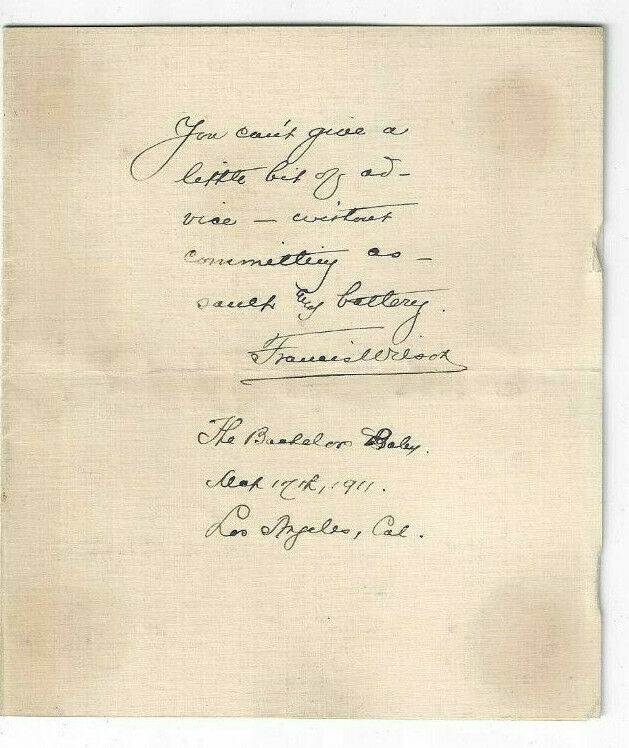 You can't give a
little bit of ad-
vice - without
committing as-
sault and battery.
Francis Wilson
The Bachelor Baby.
Mch 17th, 1911.
Los Angeles, Cal.